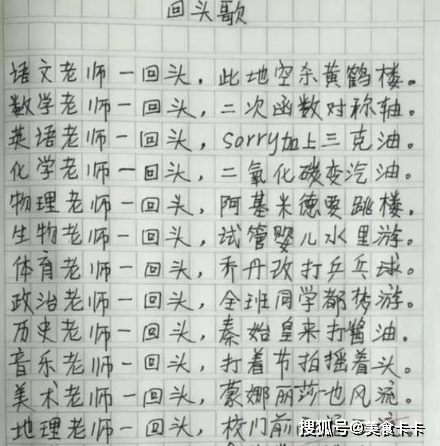 回头歌
语文老师一回头，此地空杀黄鹤楼。
数学老师一回头，二次函数对称轴。
英语老师一回头，sorry加上三克油。
化学老师一回头，二氧化碳变汽油。
物理老师一回头，阿基米德要跳楼。
生物老师一回头，试管婴儿水里游。
体育老师一回头，乔丹改打乒乓球。
政治老师一回头，全班同学都梦游。
历史老师一回头，秦始皇来打酱油。
音乐老师一回头，打着节拍摇着头。
美术老师一回头，蒙娜丽莎也风流。
地理老师一回头，校门前
搜狐号@美食卡卡